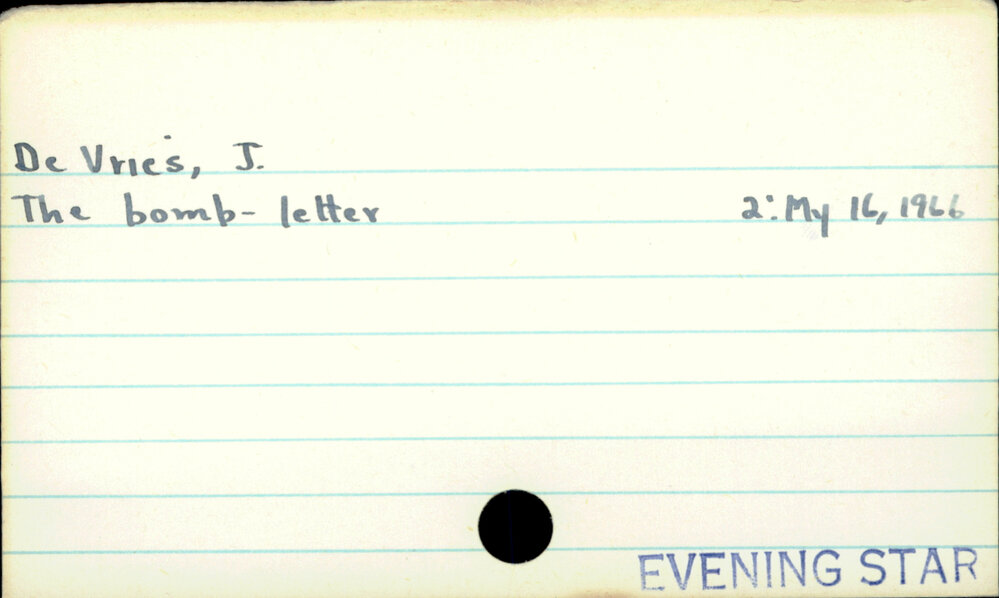 De Vries, J.
The bomb-letter 2: My 16, 1966
EVENING STAR